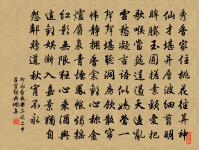 秀香家住桃花徑算神
仙才堪并層波細翦明
眸膩玉圓搓素頸愛把
歌喉當筵逞遏天邊亂
雲愁凝言語似嬌鶯一
聲聲堪聽洞房飲散簾
幃靜擁香衾歡心稱金
爐麝裊青煙鳳帳燭搖
紅影無限狂心乘酒興
這歡娛漸入嘉景猶自
怨鄰雞道秋宵不永
柳永晝夜樂二之二中